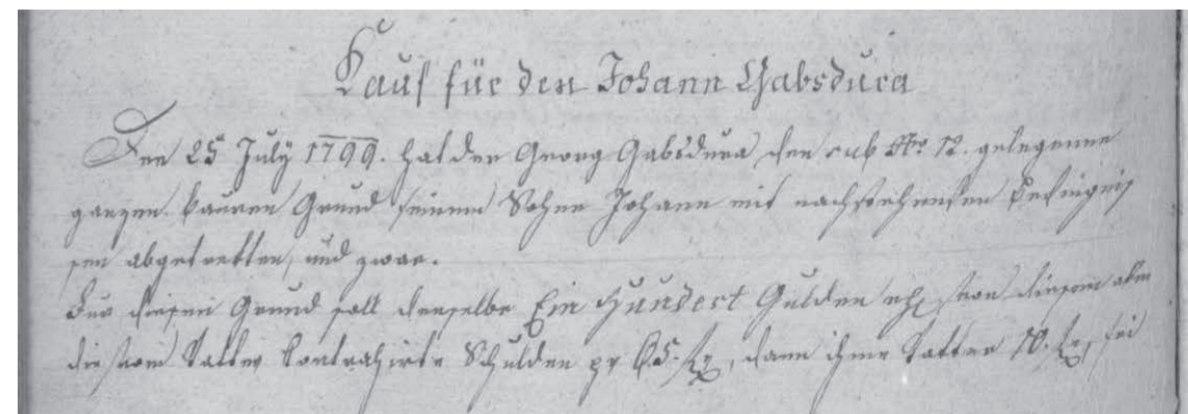 Kauf für den Johann Gabsdura
Den 25 July 1799. hat der Georg Gabsdura den sub Nro 12. gelegenne
ganzen bauren Grund seinem Sohne Johann mit nachstehenden bedingnis
sen abgetretten, und zwar.
Für diesen Grund soll derselbe Ein Hundert Gulden von diesem aber
die vom Vatter kontrahirte Schulden pr 65. fr, dann ihme Vatter 10. fr,